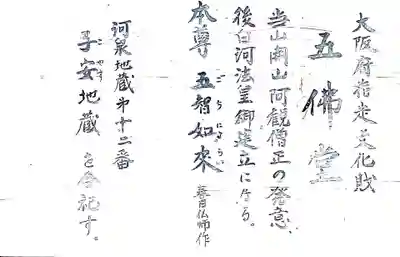 大阪府指定文化財
五佛堂
当山開山阿観僧正の発意、
後白河法皇御建立になる。
本尊 五智如來 春日仏師作
ごちにょらい
河泉地蔵第十二番
子安地蔵を合祀す。
こやす